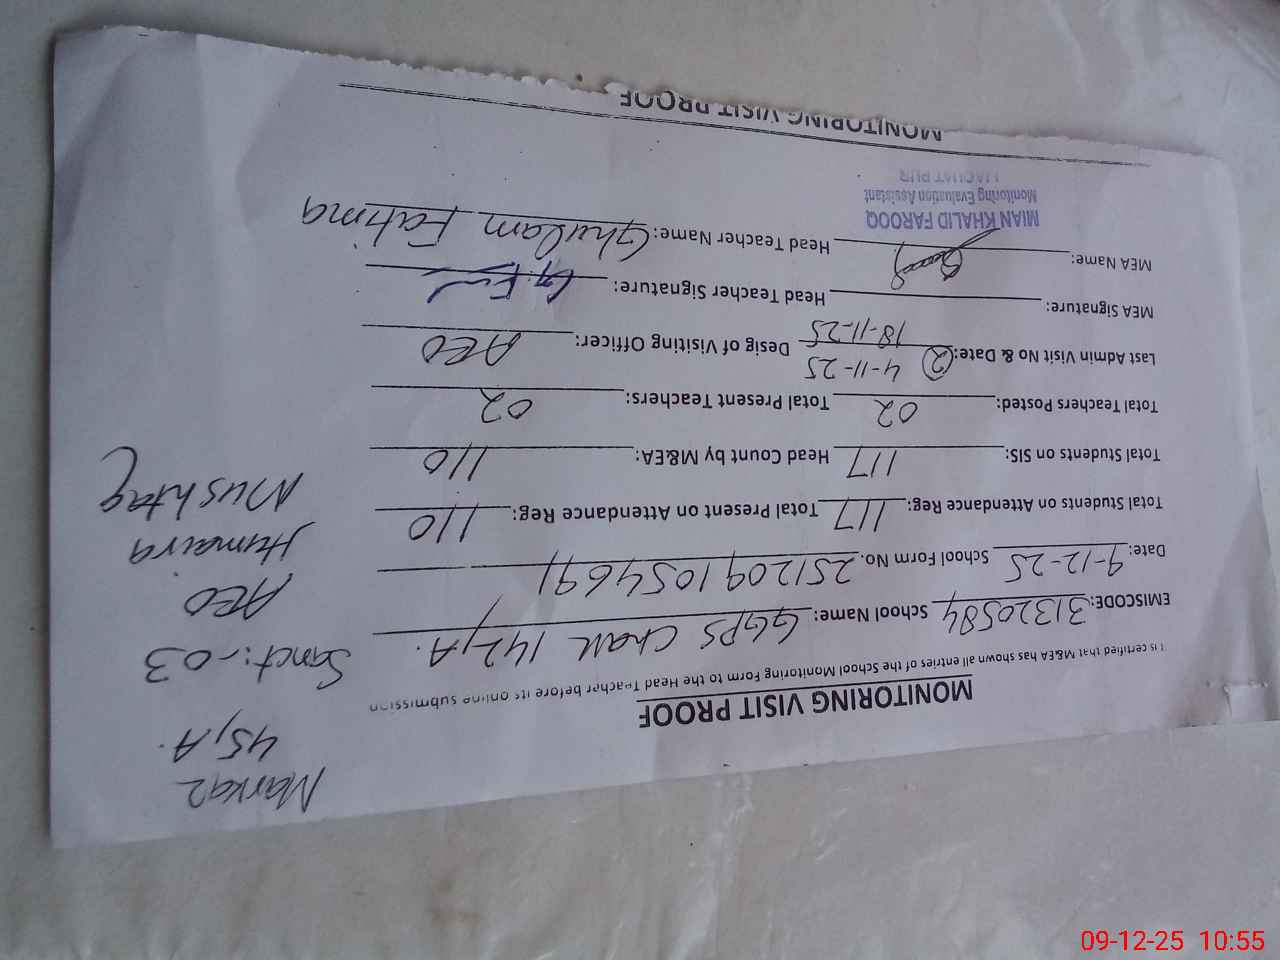 MONITORING VISIT PROOF
It is certified that M&EA has shown all entries of the School Monitoring Form to the Head Teacher before its online submission
EMISCODE: 31320584 School Name: GGPS Chak 142/A.
Date: 9-12-25 School Form No. 2512091054691
Total Students on Attendance Reg: 117 Total Present on Attendance Reg: 110
Total Students on SIS: 117 Head Count by M&EA: 110
Total Teachers Posted: 02 Total Present Teachers: 02
Last Admin Visit No & Date: 2 4-11-25 18-11-25 Desig of Visiting Officer: AEO
MEA Signature: Head Teacher Signature: G.
MEA Name: Head Teacher Name: Ghulam Fatima
MIAN KHALID FAROOQ
Monitoring Evaluation Assistant
LIAQUAT PUR
MONITORING VISIT PROOF
Markaz
45/A.
Sanct:-03
AEO
Humaira
Mushtaq
09-12-25 10:55